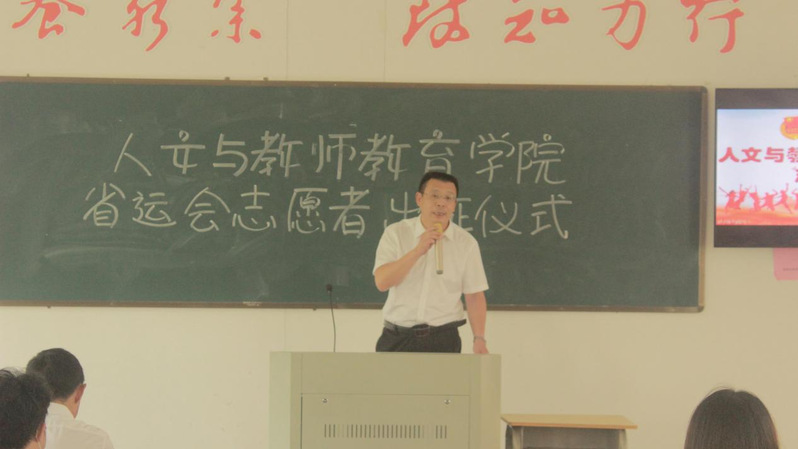 致知力行
人文与教师教育学院
省运会志愿者出征仪式
人文与教